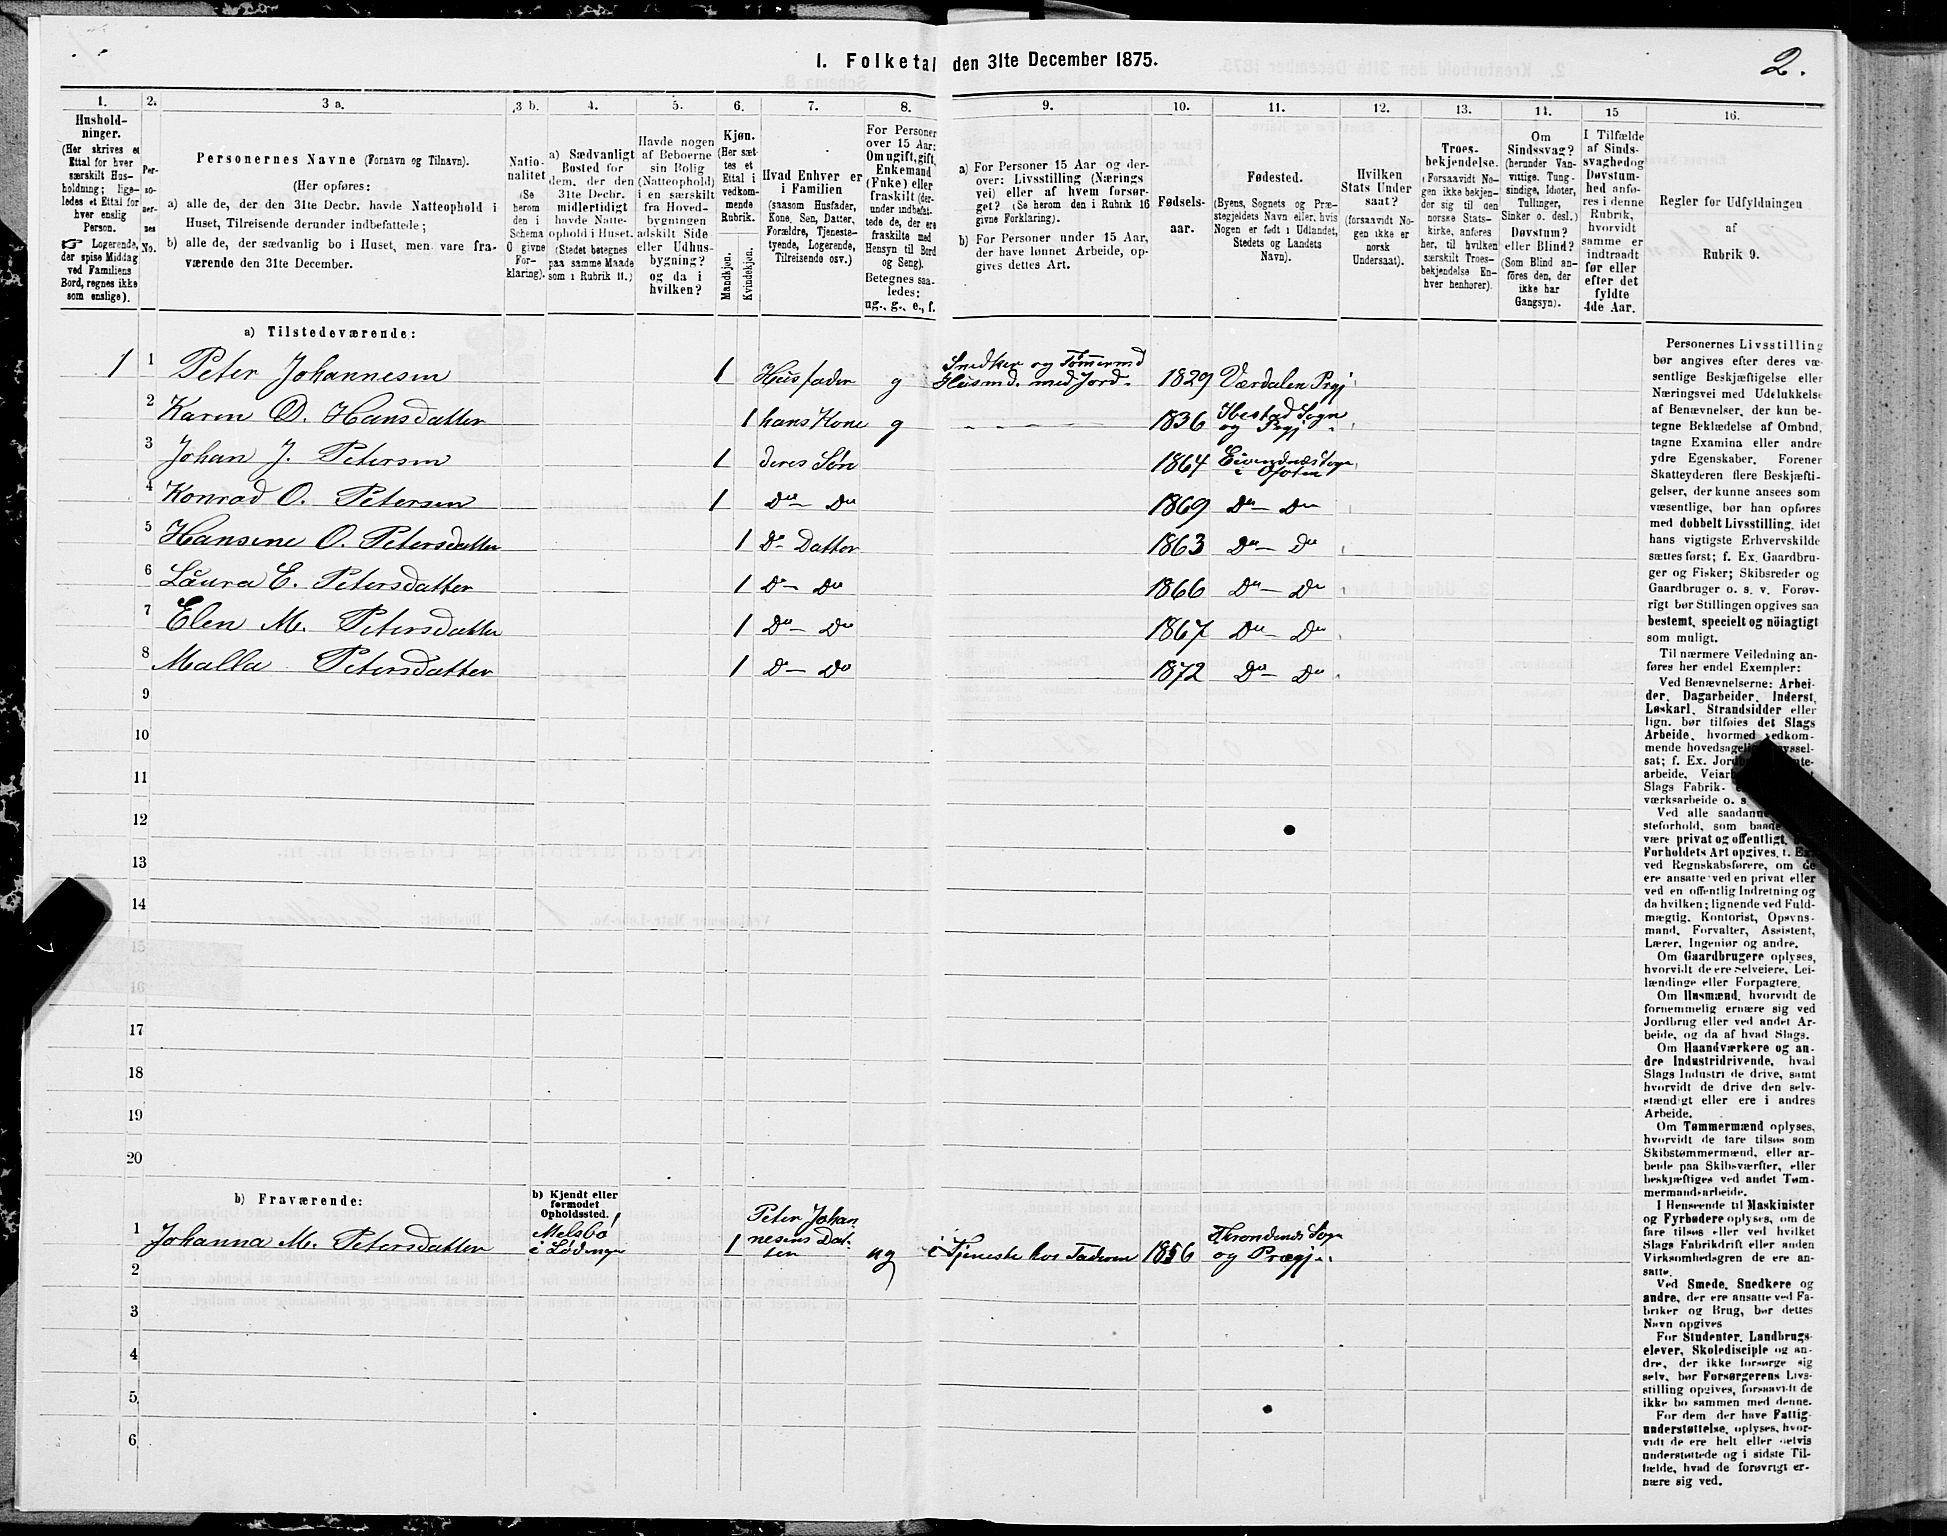 I. Folketal den 31te December 1875.
2.
1.
Hushold-
ninger.
(Her skrives et
Ettal for hver
særskilt Hus-
holdning; lige-
ledes et Ettal for
hver enslig
Person.
Logerende,
der spise Middag
ved Familiens
Bord, regnes ikke
som enslige).
2.
Per-
so-
ner-
nes
No.
3 a.
Personernes Navne (Fornavn og Tilnavn).
(Her opføres:
a) alle de, der den 31te Decbr. havde Natteophold i
Huset, Tilreisende derunder indbefattede;
b) alle de, der sædvanlig bo i Huset, men vare fra-
værende den 31te December.
3 b.
Natio-
nalitet
(Se
herom
den i
Schema
O givne
For-
klaring).
4.
a) Sædvanligt
Bosted for
dem, der den
31te Decbr.
midlertidigt
havde Natte-
ophold i Huset.
(Stedet betegnes
paa samme Maade
som i Rubrik 11.)
5.
Havde nogen
af Beboerne
sin Bolig
(Natteophold)
i en særskilt
fra Hoved-
bygningen
adskilt Side
eller Udhus-
bygning?
og da i
hvilken?
6.
Kjøn.
(Her sæt-
tes et
Ettal i
vedkom-
mende
Rubrik.
Mandkjøn.
Kvindekjøn.
7.
Hvad Enhver er
i Familien
(saasom Husfader,
Kone, Søn, Datter,
Forældre, Tjeneste-
tyende, Logerende,
Tilreisende osv.)
8.
For Personer
over 15 Aar:
Om ugift, gift,
Enkemand
(Enke) eller
fraskilt (der-
under indbefat-
tede de, der ere
fraskilte med
Hensyn til Bord
og Seng).
Betegnes saa-
ledes:
ug., g., e., f.
9.
a) For Personer 15 Aar og der-
over: Livsstilling (Nærings
vei) eller af hvem forsør-
get? (Se herom den i Rubrik 16
givne Forklaring).
b) For Personer under 15 Aar,
der have lønnet Arbeide, op-
gives dettes Art.
10.
Fødsels-
aar.
11.
Fødested.
(Byens, Sognets og Præ-
stegjeldets Navn eller, hvis
Nogen er født i Udlandet,
Stedets og Landets
Navn).
12.
Hvilken
Stats Under
saat?
(forsaavidt No-
gen ikke er
norsk
Undersaat).
13.
Troes-
bekjendelse.
(Forsaavidt No-
gen ikke bekjen-
der sig til den
norske Stats-
kirke, anføres
her, til hvilken
særskilt Troes-
bekjendelse En-
hver henhører).
14.
Om
Sindssvag?
(herunder Van-
vittige, Tung-
sindige, Idioter,
Tullinger,
Sinker o. desl.)
Døvstum?
eller Blind?
(Som Blind an-
føres den, der
ikke har
Gangsyn).
15
I Tilfælde
af Sinds-
svaghed og
Døvstum-
hed anfø-
res i denne
Rubrik,
hvorvidt
samme er
indtraadt
før eller
efter det
fyldte
4de Aar.
16.
Regler for Udfyldningen
af
Rubrik 9.
a) Tilstedeværende:
1 1 Peter Johannesen 1 Husfader g Snedker og Tømmermd Husmd. med Jord. 1829 Værdalen Prgj
2 Karen D. Hansdatter 1 hans Kone g 1836 Ibestad Sogn og Prgj
3 Johan J. Petersen 1 deres Søn 1864 Evendnæs Sogn i Ofoten
4 Konrad O. Petersen 1 Do— Do 1869 Do— Do
5 Hansine O. Petersdatter 1 Do Datter 1863 Do— Do
6 Laura E. Petersdatter 1 Do— Do 1866 Do— Do
7 Elen M. Petersdatter 1 Do— Do 1867 Do— Do
8 Malla Petersdatter 1 Do— Do 1872 Do— Do
9
10
11
12
13
14
15
16
17
18
19
20
b) Fraværende:
b) Kjendt eller
formodet
Opholdssted.
1 Johanna M. Petersdatter Melsbø i Lødingen 1 Peter Johannesens Datter ug i Tjeneste hos Faderen 1856 Throndenæs Sogn og Prægj.
2
3
4
5
6
Personernes Livsstilling
bør angives efter deres væ-
sentlige Beskjæftigelse eller
Næringsvei med Udelukkelse
af Benævnelser, der kun be-
tegne Beklædelse af Ombud,
tagne Examina eller andre
ydre Egenskaber. Forener
Skatteyderen flere Beskjæfti-
gelser, der kunne ansees som
væsentlige, bør han opføres
med dobbelt Livsstilling, idet
hans vigtigste Erhvervskilde
sættes først; f. Ex. Gaardbru-
ger og Fisker; Skibsreder og
Gaardbruger o. s. v. Forøv-
rigt bør Stillingen opgives saa
bestemt, specielt og nöiagtigt
som muligt.
Til nærmere Veiledning an-
føres her endel Exempler:
Ved Benævnelserne: Arbei-
der, Dagarbeider, Inderst,
Løskarl, Strandsidder eller
lign. bør tilføies det Slags
Arbeide, hvormed vedkom-
mende hovedsagelig sysselsat; f. Ex.
arbeide,
Slags Fabrik-
værksarbeide o. s
Ved alle saadanne
steforhold, som baade
være privat og offentligt,
Forholdets Art opgives, f. Ex.
ved Regnskabsførere, om de
ere ansatte ved en privat eller
ved en offentlig Indretning og
da hvilken; lignende ved Fuld-
mægtig, Kontorist, Opsyns-
mand, Forvalter, Assistent,
Lærer, Ingeniør og andre.
Om Gaardbrugere oplyses,
hvorvidt de ere Selveiere, Lei-
lændinge eller Forpagtere.
Om Husmænd, hvorvidt de
fornemmelig ernære sig ved
Jordbrug eller ved andet Ar-
beide, og da af hvad Slags.
Om Haandværkere og an-
dre Industridrivende, hvad
Slags Industri de drive, samt
hvorvidt de drive den selv-
stændigt eller ere i andres
Arbeide.
Om Tømmermænd oplyses,
hvorvidt de fare tilsøs som
Skibstømmermænd, eller ar-
beide paa Skibsværfter, eller
beskjæftiges ved andet Tøm-
mermandsarbeide.
I Henseende til Maskinister
og Fyrbødere oplyses, om de
fare tilsøs eller ved hvilket
Slags Fabrikdrift eller anden
Virksomhedsgren de ere an-
satte.
Ved Smede, Snedkere og
andre, der ere ansatte ved Fa-
briker og Brug, bør dettes
Navn opgives
For Studenter, Landbrugs-
elever, Skoledisciple og an-
dre, der ikke forsørge sig
selv, bør Forsørgerens Livs-
stilling opgives, forsaavidt de
ikke bo sammen med denne.
For dem der have Fattig-
understøttelse, oplyses, hvor-
vidt de ere helt eller delvis
understøttede og i sidste Til-
fælde, hvad de forøvrigt er-
nære sig ved.